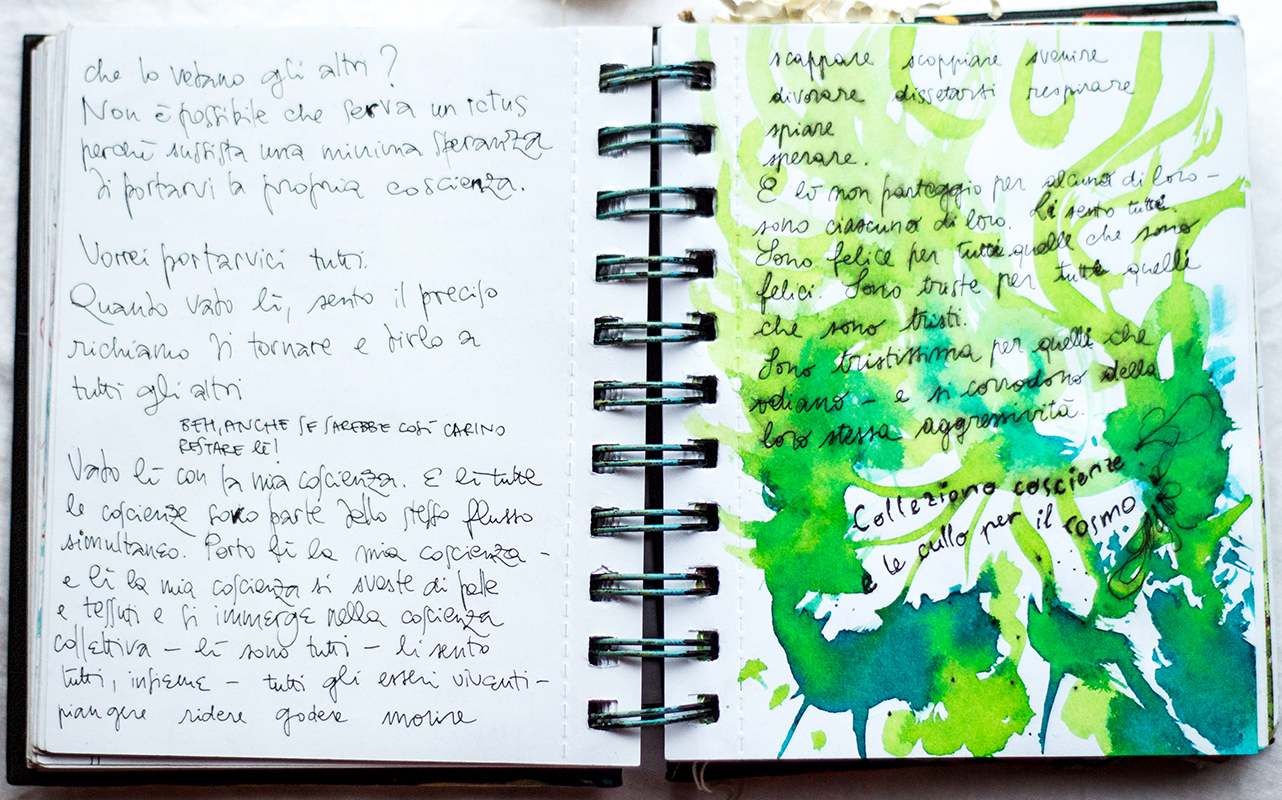 che lo vetano gli altri?
Non è possibile che serva un ictus
perché sussista una minima speranza
di portarvi la propria coscienza.
Vorrei portarvici tutti.
Quando vado lì, sento il preciso
richiamo di tornare e dirlo a
tutti gli altri
BEH, ANCHE SE SAREBBE COSÌ CARINO
RESTARE LÌ!
Vado lì con la mia coscienza. E lì tutte
le coscienze sono parte dello stesso flusso
simultaneo. Porto lì la mia coscienza -
e lì la mia coscienza si sveste di pelle
e tessuti e si immerge nella coscienza
collettiva - lì sono tutti - li sento
tutti, insieme - tutti gli esseri viventi -
piangere ridere godere morire
scappare scoppiare svenire
divorare dissetarsi respirare
spiare
sperare.
E io non parteggio per alcuno di loro -
sono ciascuno di loro. Li sento tutti.
Sono felice per tutti quelli che sono
felici. Sono triste per tutti quelli
che sono tristi.
Sono tristissima per quelli che
odiano - e si corrodono della
loro stessa aggressività.
Colleziono coscienze
e le cullo per il cosmo